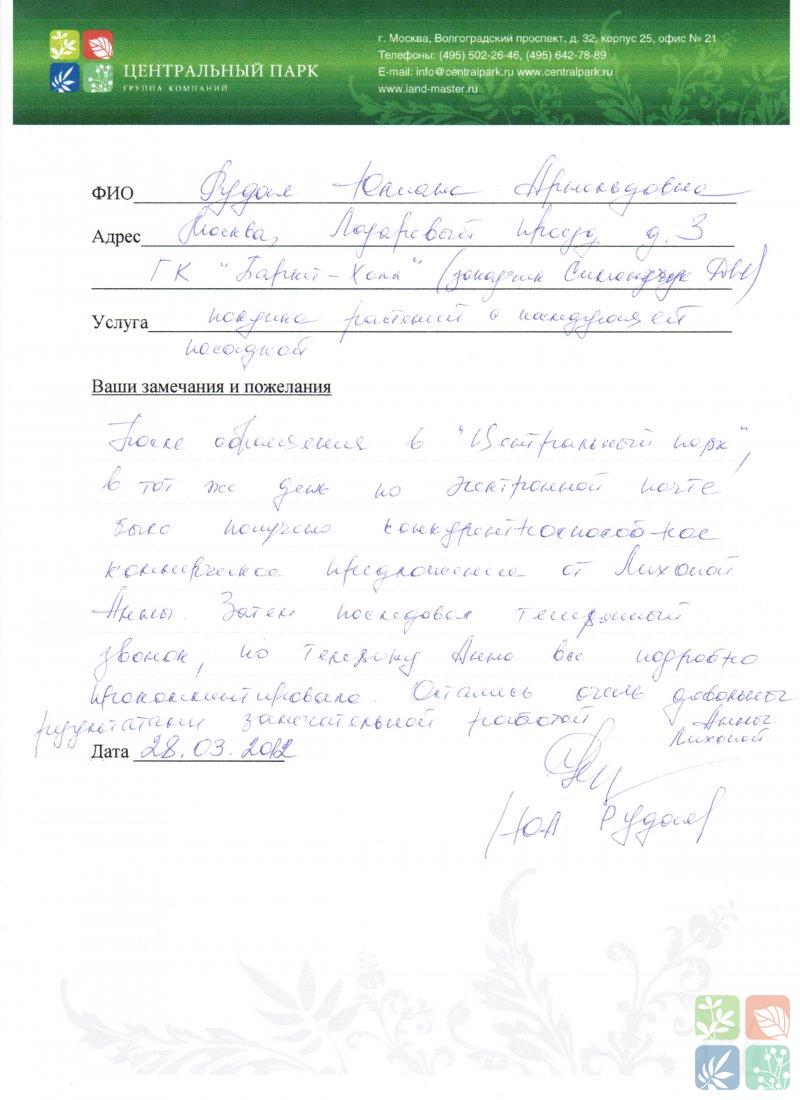 г. Москва, Волгоградский проспект, д. 32, корпус 25, офис № 21
Телефоны: (495) 502-26-46, (495) 642-78-89
E-mail: info@centralpark.ru www.centralpark.ru
www.land-master.ru
ЦЕНТРАЛЬНЫЙ ПАРК
ГРУППА КОМПАНИЙ
ФИО Рудая Юлиана
Адрес Москва, Лазаревый проезд д. 3
ГК (заказчик
Услуга покупка растений с последующей
посадкой
Ваши замечания и пожелания
После обращения в "Центральный парк",
в тот же день по электронной почте
было получено конкурентноспособное
коммерческое предложение от Лихопой
Анны. Затем последовал телефонный
звонок, по телефону Анна все подробно
прокомментировала. Остались очень довольны
результатами замечательной работой Анны
Лихопой
Дата 28.03.2012
/Ю.А. Рудая/